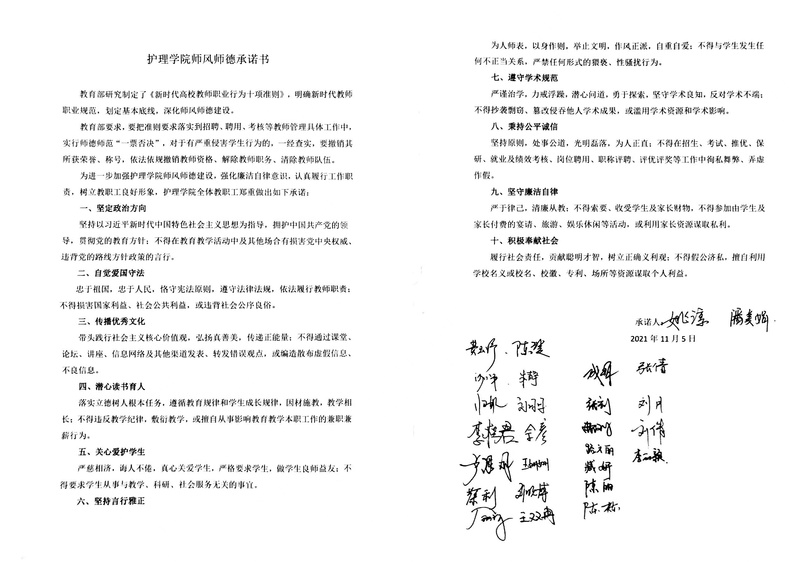 护理学院师风师德承诺书
教育部研究制定了《新时代高校教师职业行为十项准则》，明确新时代教师
职业规范，划定基本底线，深化师风师德建设。
教育部要求，要把准则要求落实到招聘、聘用、考核等教师管理具体工作中，
实行师德师范“一票否决”，对于有严重侵害学生行为的，一经查实，要撤销其
所获荣誉、称号，依法依规撤销教师资格、解除教师职务、清除教师队伍。
为进一步加强护理学院师风师德建设，强化廉洁自律意识，认真履行工作职
责，树立教职工良好形象，护理学院全体教职工郑重做出如下承诺：
一、坚定政治方向
坚持以习近平新时代中国特色社会主义思想为指导，拥护中国共产党的领
导，贯彻党的教育方针；不得在教育教学活动中及其他场合有损害党中央权威、
违背党的路线方针政策的言行。
二、自觉爱国守法
忠于祖国，忠于人民，恪守宪法原则，遵守法律法规，依法履行教师职责；
不得损害国家利益、社会公共利益，或违背社会公序良俗。
三、传播优秀文化
带头践行社会主义核心价值观，弘扬真善美，传递正能量；不得通过课堂、
论坛、讲座、信息网络及其他渠道发表、转发错误观点，或编造散布虚假信息、
不良信息。
四、潜心读书育人
落实立德树人根本任务，遵循教育规律和学生成长规律，因材施教，教学相
长；不得违反教学纪律，敷衍教学，或擅自从事影响教育教学本职工作的兼职兼
薪行为。
五、关心爱护学生
严慈相济，诲人不倦，真心关爱学生，严格要求学生，做学生良师益友；不
得要求学生从事与教学、科研、社会服务无关的事宜。
六、坚持言行雅正
为人师表，以身作则，举止文明，作风正派，自重自爱；不得与学生发生任
何不正当关系，严禁任何形式的猥亵、性骚扰行为。
七、遵守学术规范
严谨治学，力戒浮躁，潜心问道，勇于探索，坚守学术良知，反对学术不端；
不得抄袭剽窃、篡改侵吞他人学术成果，或滥用学术资源和学术影响。
八、秉持公平诚信
坚持原则，处事公道，光明磊落，为人正直；不得在招生、考试、推优、保
研、就业及绩效考核、岗位聘用、职称评聘、评优评奖等工作中徇私舞弊、弄虚
作假。
九、坚守廉洁自律
严于律己，清廉从教；不得索要、收受学生及家长财物，不得参加由学生及
家长付费的宴请、旅游、娱乐休闲等活动，或利用家长资源谋取私利。
十、积极奉献社会
履行社会责任，贡献聪明才智，树立正确义利观；不得假公济私，擅自利用
学校名义或校名、校徽、专利、场所等资源谋取个人利益。
承诺人：
2021 年 11 月 5 日
张倩
朱静
张利 刘月
刘倩
蔡利
陈丽
陈栋